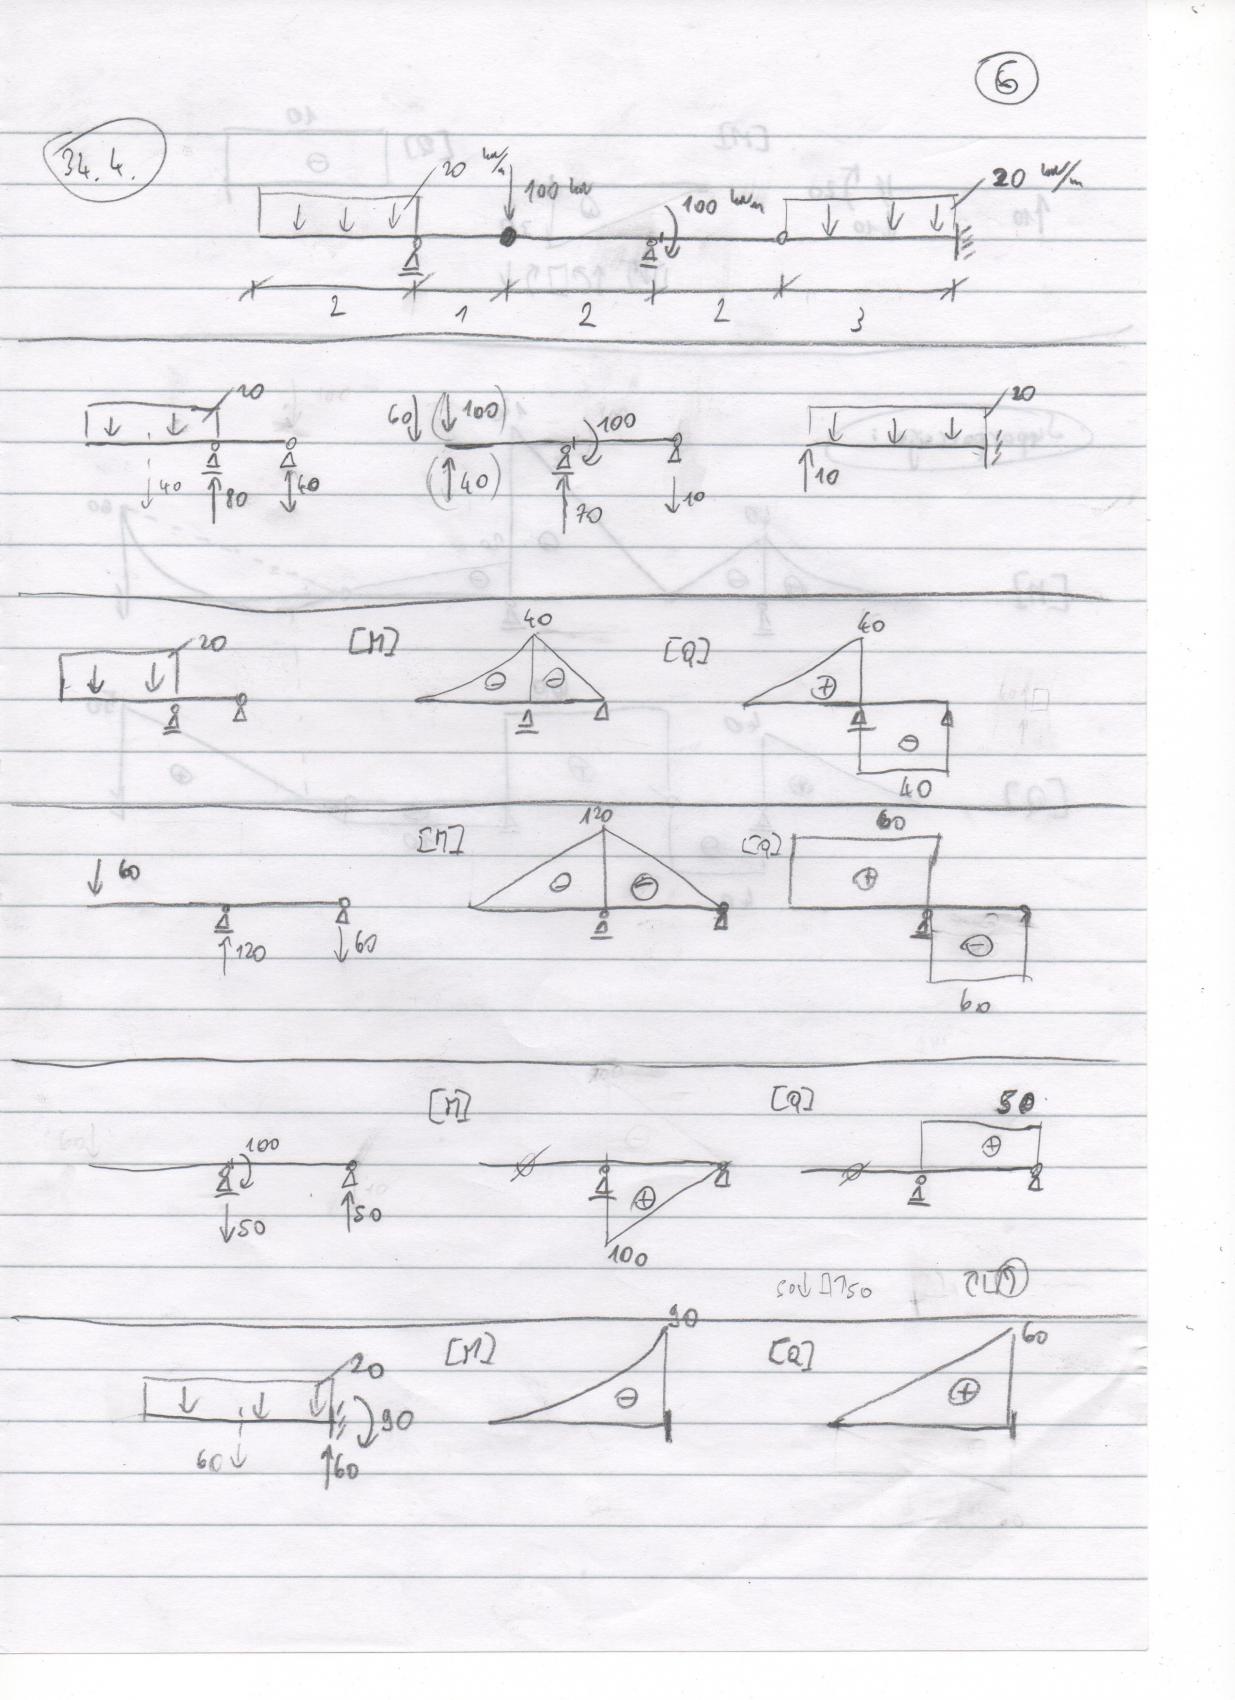 6
34. 4.
20 kN/m 100 kN 100 kNm 20 kN/m
2 1 2 2 3
20 60 (100) 100 20
40 80 40 (40) 70 10 10
20 [M] 40 [Q] 40
40
60 [M] 120 [Q] 60
120 60 60
100 [M] [Q] 50
50 50 100
50 50
20 90 [M] 90 [Q] 60
60 60